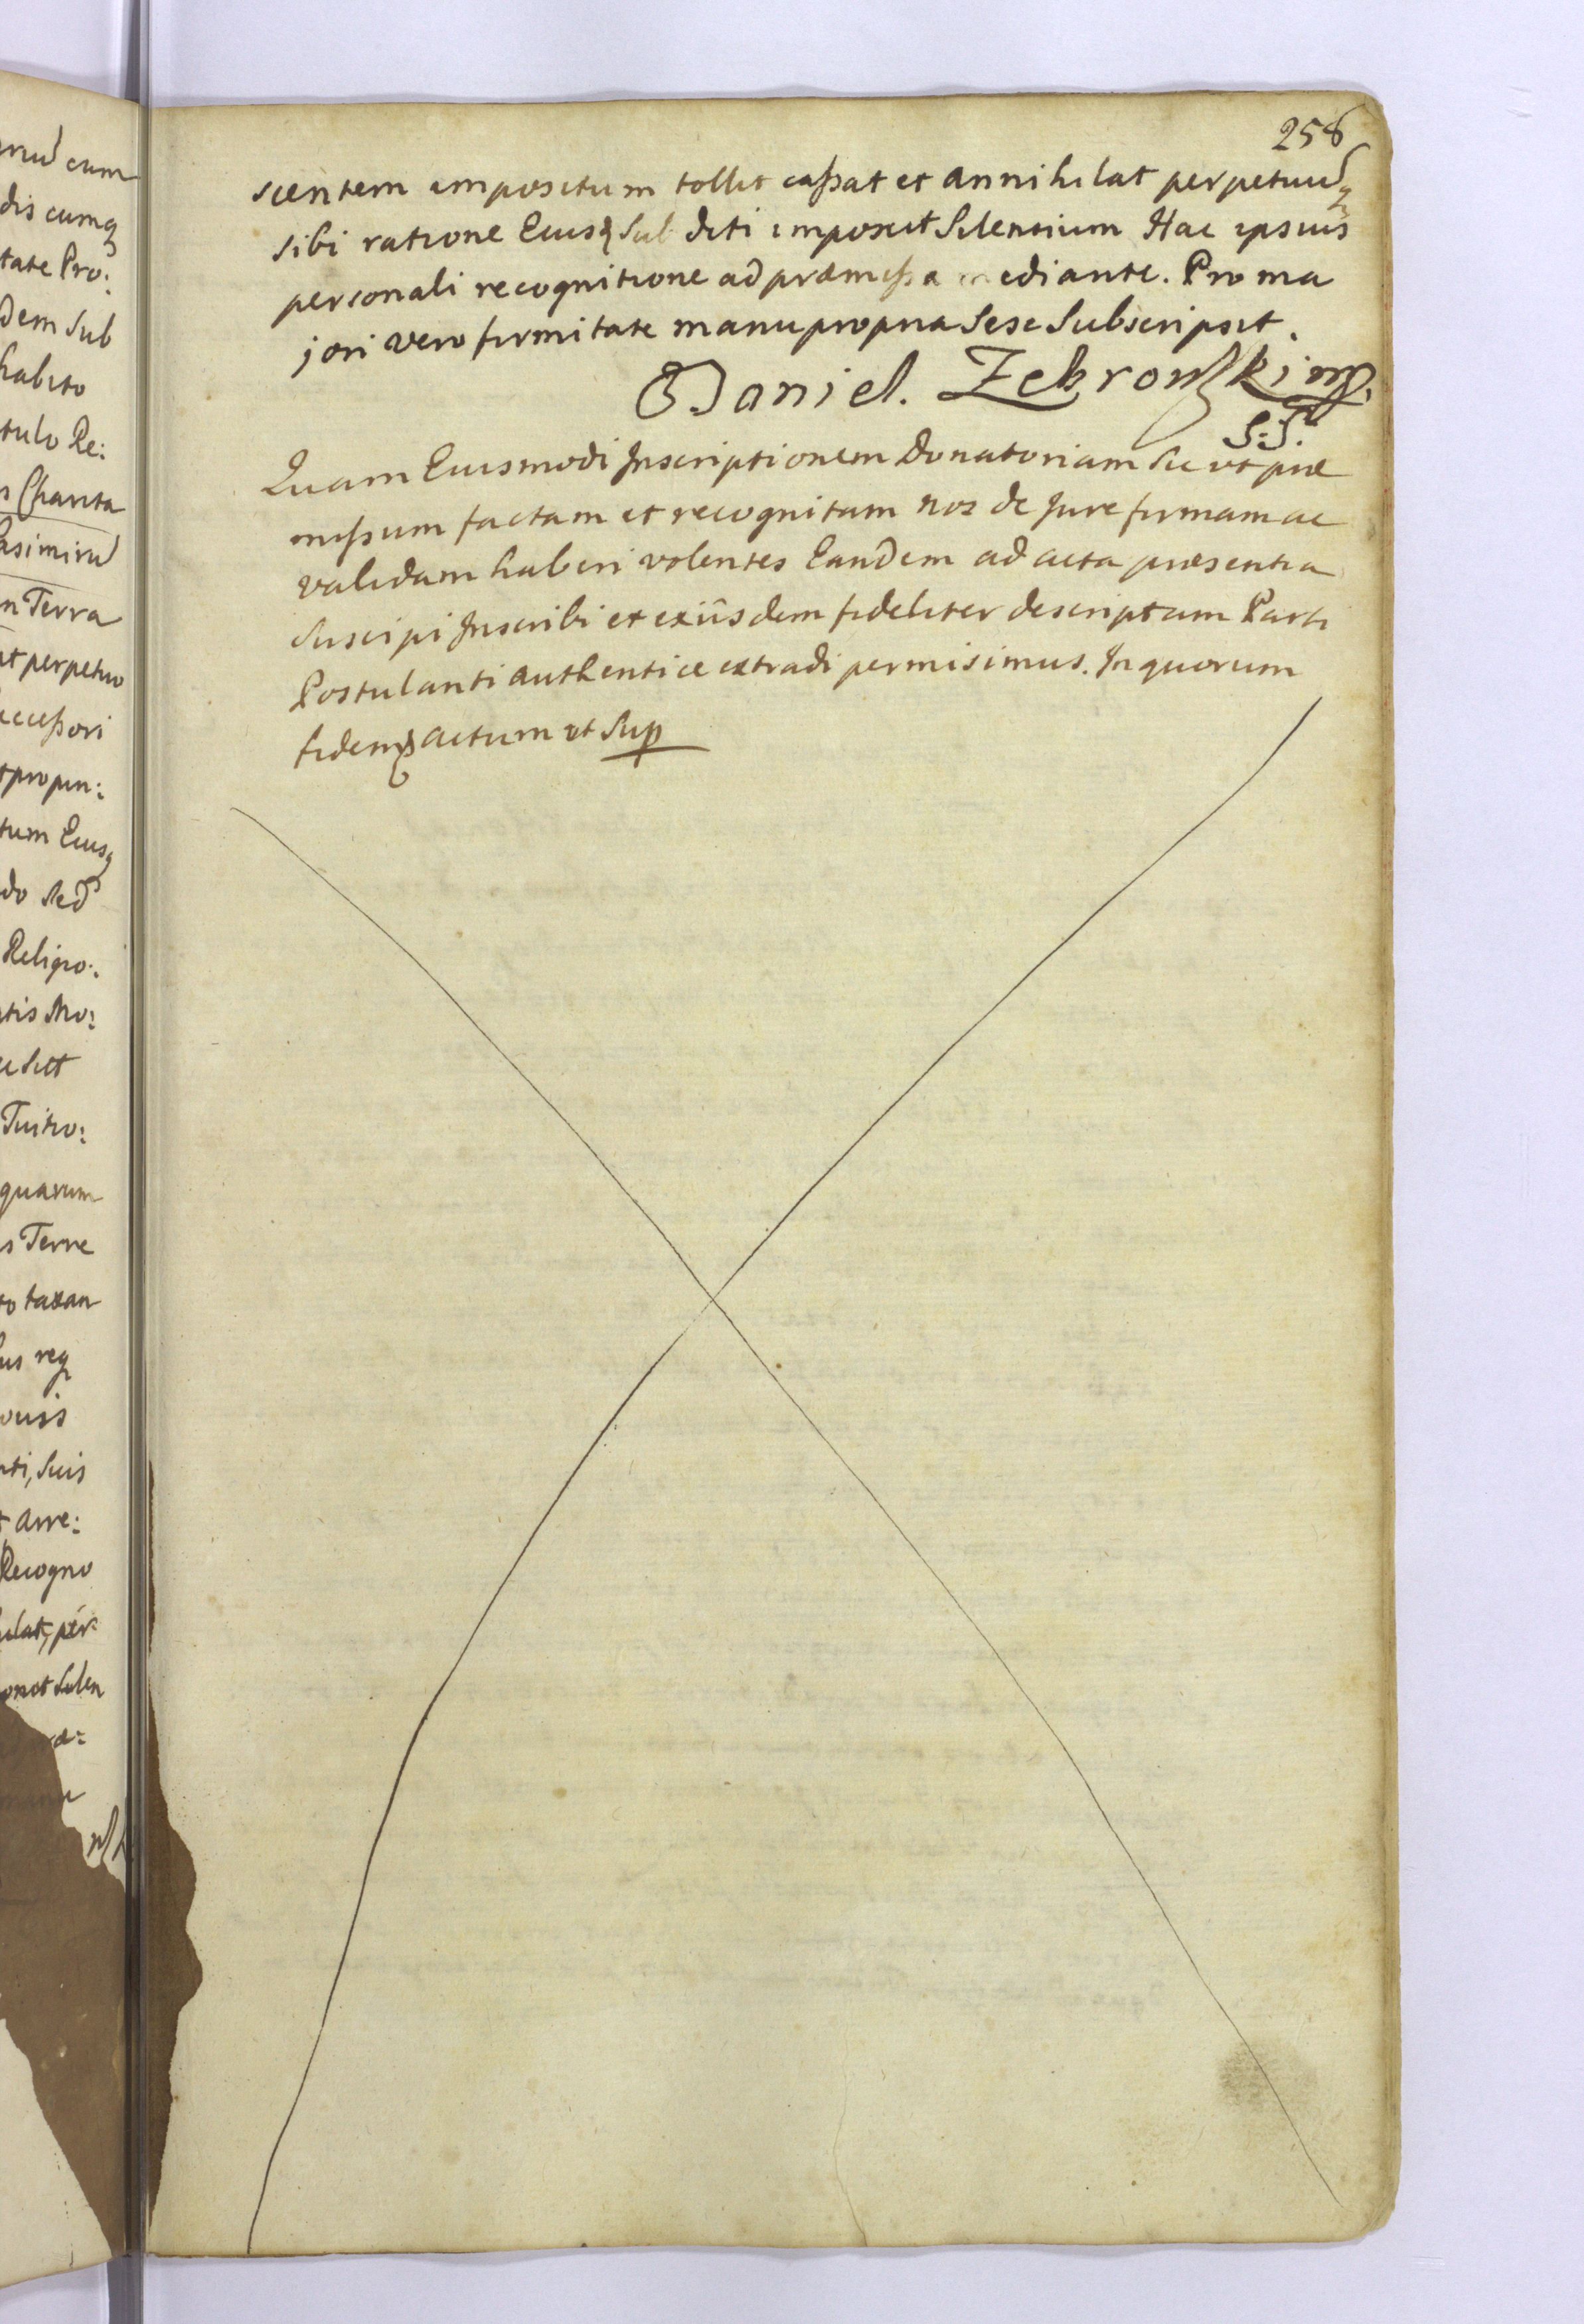 mũ cum
dis cumq
tate Pro:
dem Sub
habito
tulo Re:
Charita
asimirũ
n Terra
et perpetuo
ccessori
t propin:
tum Eiusq
do Sed
Religio:
tis Mo:
Tuitio:
quarum
s Terre
to taxan
us req
ouis
nti, Suis
t arre:
Recogno
ilat, per:
onit Silen
258
scentem impositum tollit cassat et annihilat perpetuũq
sibi ratione Eiusq Sub diti imposuit Silentium Hac ipsius
personali recognitione ad præmissa mediante. Pro ma
jori vero firmitate manu propria Sese Subscripsit.
Daniel. Zebrowski mp.
S:S.
Quam Eiusmodi Inscriptionem Donatoriam Sic ut præ
missum factam et recognitam nos de Jure firmam ac
validam haberi volentes Eandem ad acta præsentia
Suscipi Inscribi et exiisdem fideliter descriptam Parti
Postulanti authentice extradi permisimus. In quorum
fidem actum ut Sup